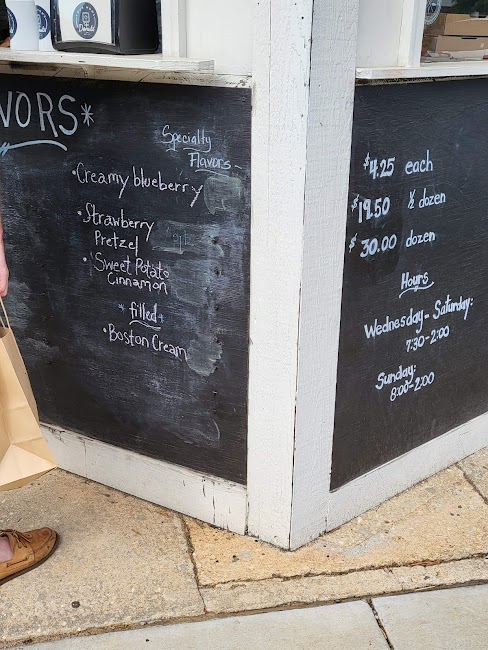 VORS*
Specialty
Flavors
• Creamy blueberry
• Strawberry
Pretzel
• Sweet Potato
Cinnamon
filled
• Boston Cream
$4.25 each
$19.50 ½ dozen
$30.00 dozen
Hours
Wednesday - Saturday:
7:30-2:00
Sunday:
8:00-2:00